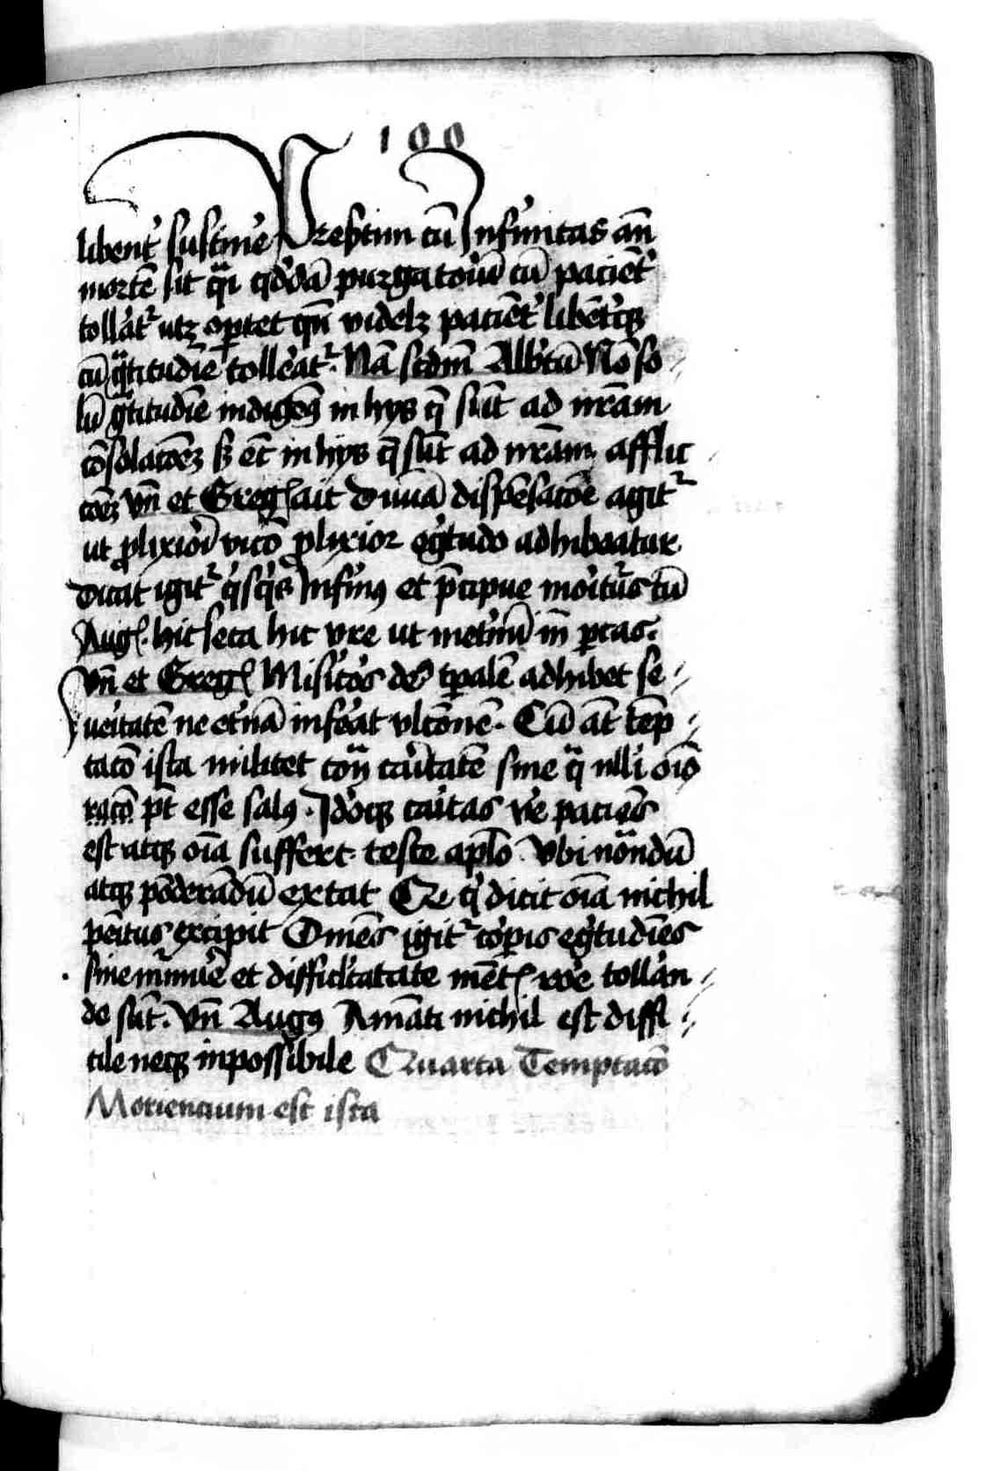 100
libent᷑ sustine᷑ Presertim cū Infirmitas an̄
mortē sit q̄i qd᷑dā purgatoriū cū pacient᷑
toll᷑at᷑ utꝫ oportet qn̄ videlꝫ pacient᷑ libent᷑ qꝫ
cū gͣtitudīe tolle᷑at᷑. Nā scdm̄ Alb᷑tū Nō so
lū gͣtitudīe indigeꝰ in hys q̄ sūt ad nr̄am
cōsolacōeꝫ sꝫ et̄ in hys q̄ sūt ad nr̄am afflic
cōeꝫ Vn̄ et Greg᷑ ait Diuīa dispēsacōe agit᷑
ut ꝓlixiori᷑ vicio ꝓlixior egi᷑tudo adhibeatur
Dicat igit᷑ qͥsqͥs Infirmꝰ et p̄cipue morit᷑ꝰ cū
Aug᷑. hic seca hic vre ut in et᷑nū m̄ parcas.
Vn̄ et Greg᷑ Mis᷑icors deꝰ tꝑalē adhibet se
ueritatē ne et᷑nā inferat vltōnē. Cū at̄ tēp
tacō ista militet con̄ ca᷑itatē sine qͣ nlli oīo
pt̄ esse salꝰ. Id᷑oqꝫ ca᷑itas ve᷑ paciēs
est atqꝫ oīa suffert teste apl̄o Vbi notandū
atqꝫ pōderādū extat Qr qͥ dicit oīa nichil
penitus excipit Omēs igit᷑ corꝑis egi᷑tudīes
sine murmure et difficultate ment᷑ tolleran
de sūt. Vn̄ Augꝰ Amāti nichil est diffi
cile neqꝫ inpossibile Quarta Temptacō
Moriencium est ista